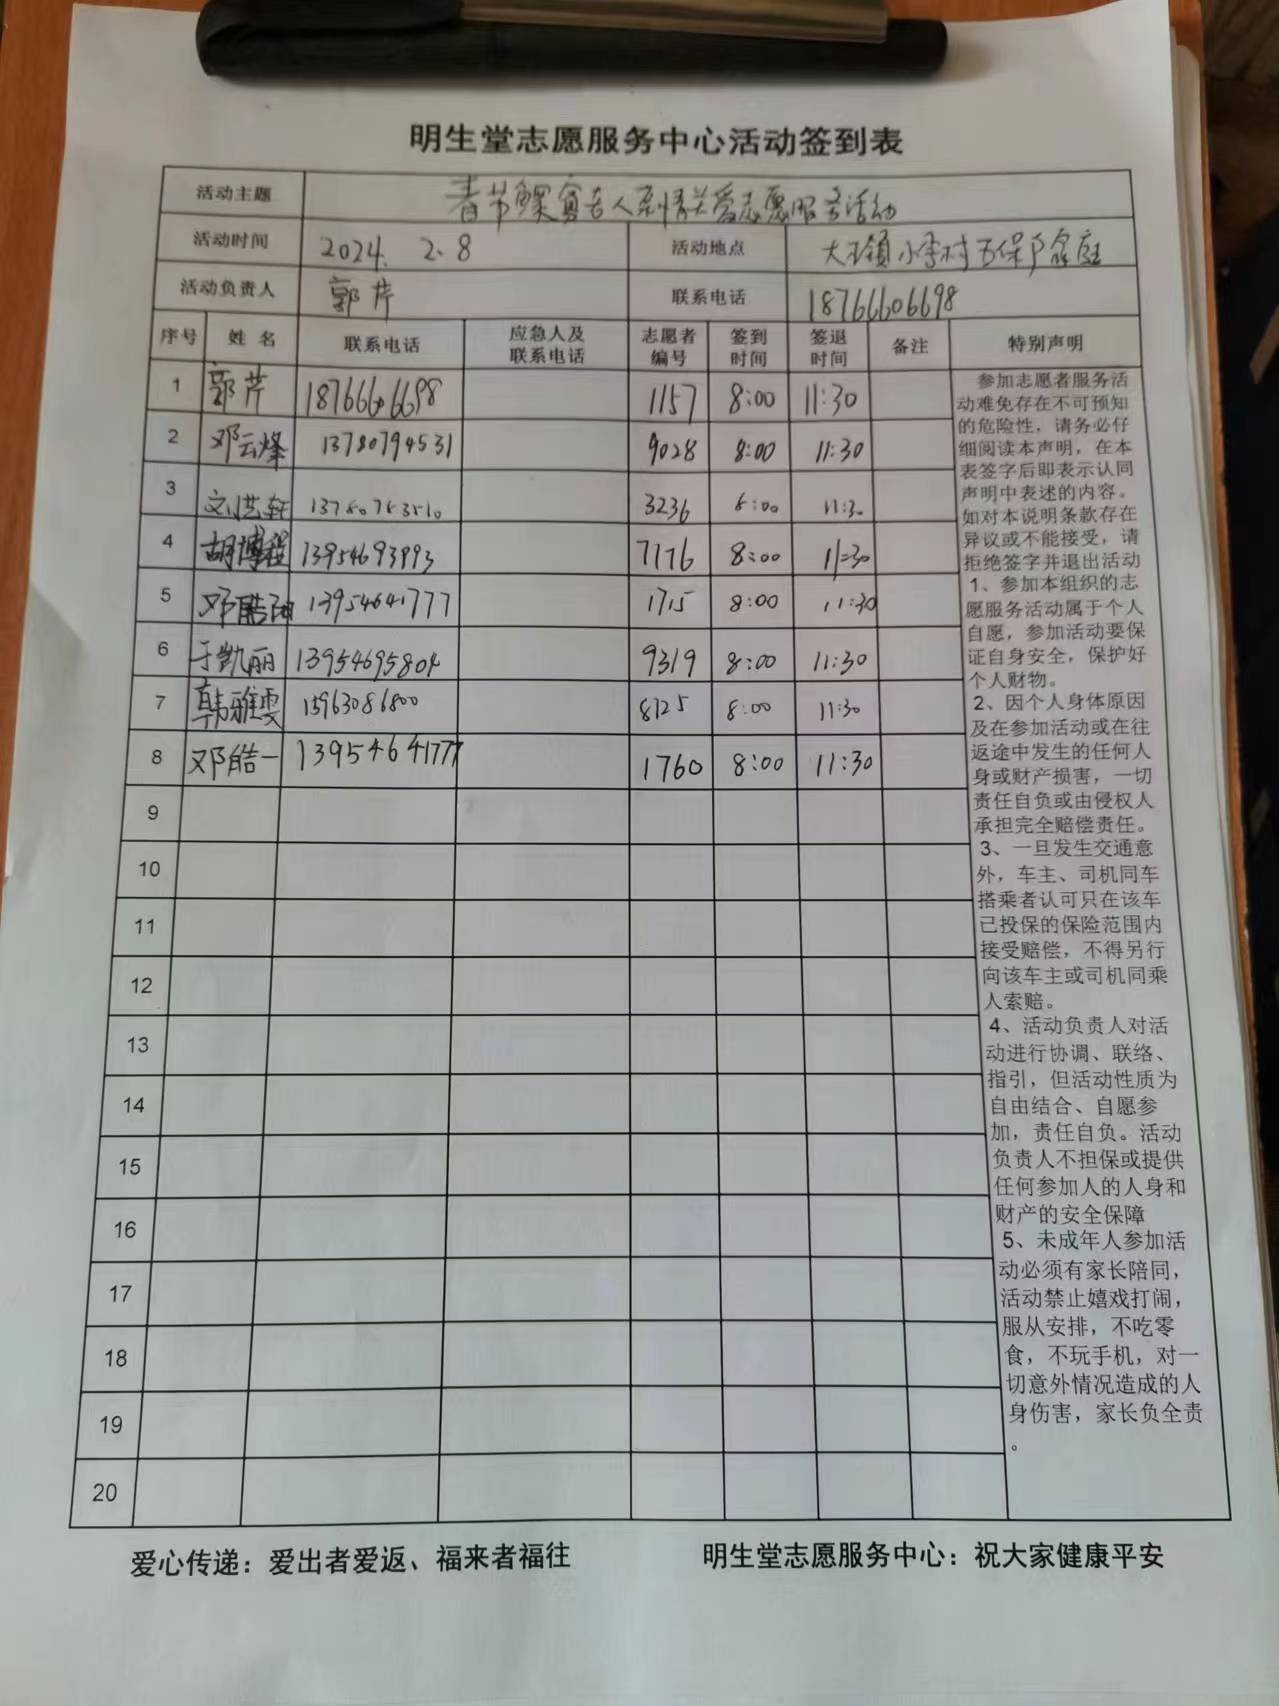 明生堂志愿服务中心活动签到表
活动主题 春节鳏寡老人亲情关爱志愿服务活动
活动时间 2024. 2.8 活动地点 大王镇小李村五保户家庭
活动负责人 郭芹 联系电话 18766606698
序号 姓名 联系电话 应急人及联系电话 志愿者编号 签到时间 签退时间 备注 特别声明
1 郭芹 18766606698 1157 8:00 11:30
2 邓云烽 13780794531 9028 8:00 11:30
3 刘洪轩 3236 8:00 11:30
4 胡博程 13954693993 7176 8:00 11:30
5 邓 13954641777 1715 8:00 11:30
6 于凯丽 13954695804 9319 8:00 11:30
7 韩雅雯 15963086800 8125 8:00 11:30
8 邓皓一 13954641777 1760 8:00 11:30
9
10
11
12
13
14
15
16
17
18
19
20
参加志愿者服务活
动难免存在不可预知
的危险性，请务必仔
细阅读本声明，在本
表签字后即表示认同
声明中表述的内容。
如对本说明条款存在
异议或不能接受，请
拒绝签字并退出活动
1、参加本组织的志
愿服务活动属于个人
自愿，参加活动要保
证自身安全，保护好
个人财物。
2、因个人身体原因
及在参加活动或在往
返途中发生的任何人
身或财产损害，一切
责任自负或由侵权人
承担完全赔偿责任。
3、一旦发生交通意
外，车主、司机同车
搭乘者认可只在该车
已投保的保险范围内
接受赔偿，不得另行
向该车主或司机同乘
人索赔。
4、活动负责人对活
动进行协调、联络、
指引，但活动性质为
自由结合、自愿参
加，责任自负。活动
负责人不担保或提供
任何参加人的人身和
财产的安全保障
5、未成年人参加活
动必须有家长陪同，
活动禁止嬉戏打闹，
服从安排，不吃零
食，不玩手机，对一
切意外情况造成的人
身伤害，家长负全责
。
爱心传递：爱出者爱返、福来者福往 明生堂志愿服务中心：祝大家健康平安